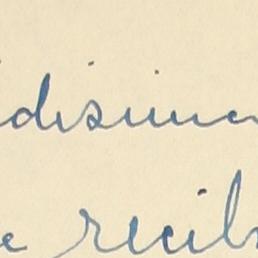 disima
e recib